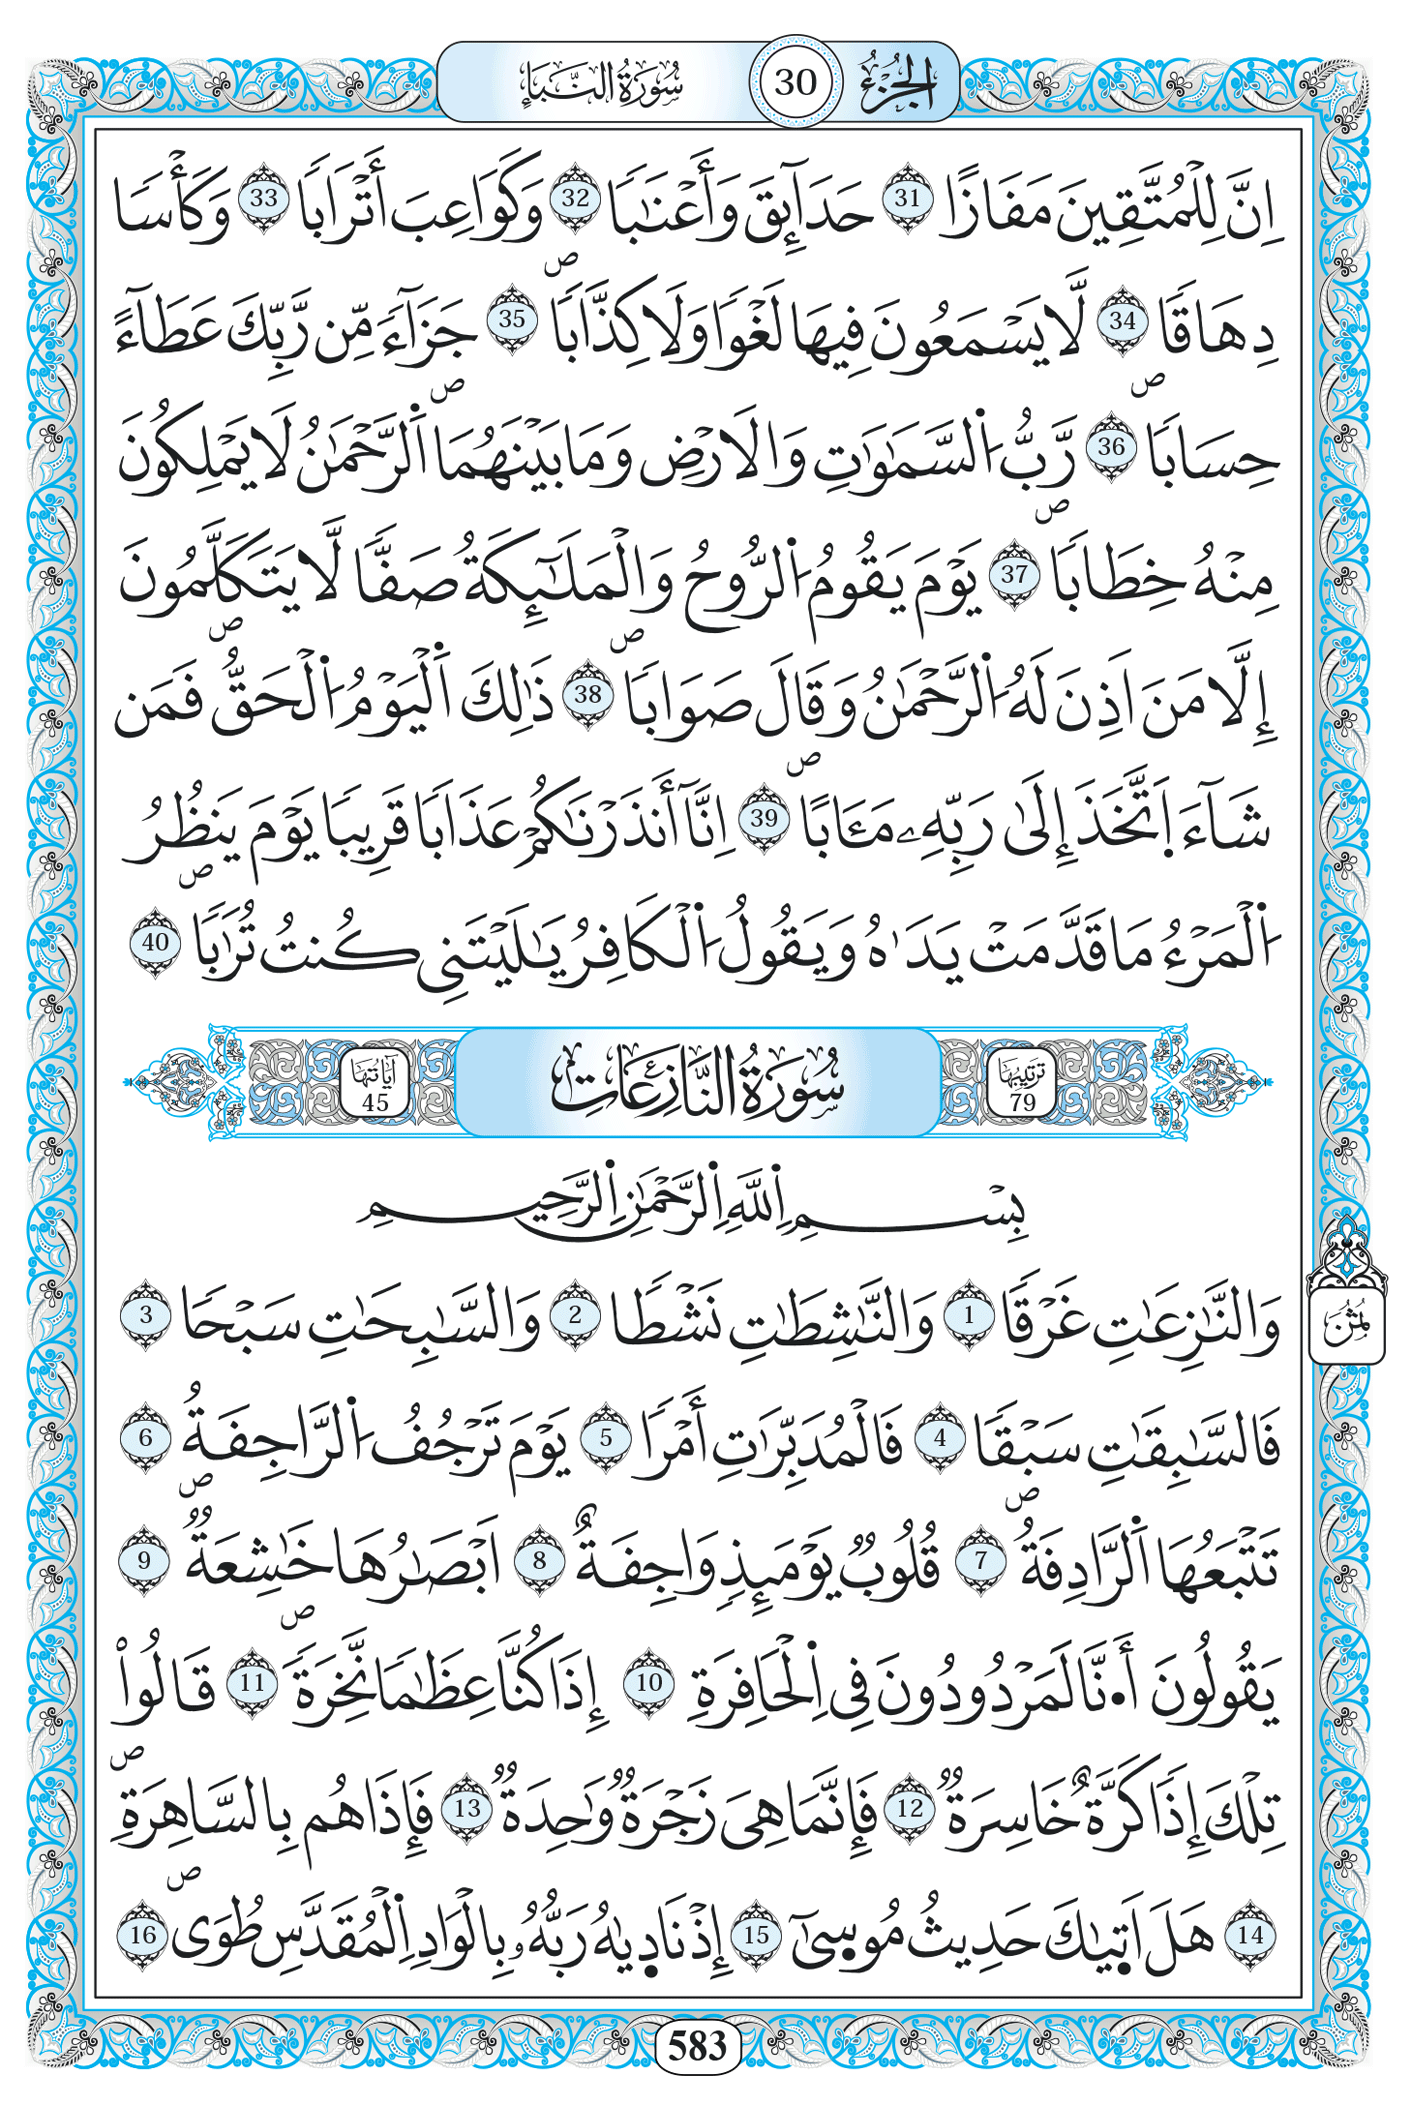 الجزء 30 سورة النبإ
اِنَّ لِلْمُتَّقِينَ مَفَازًا 31 حَدَآئِقَ وَأَعْنَٰبًا 32 وَكَوَاعِبَ أَتْرَابًا 33 وَكَأْسًا
دِهَاقًا 34 لَّا يَسْمَعُونَ فِيهَا لَغْوًا وَلَا كِذَّابًا 35 جَزَآءً مِّن رَّبِّكَ عَطَآءً
حِسَابًا 36 رَّبُّ اُ۬لسَّمَٰوَٰتِ وَالَارْضِ وَمَا بَيْنَهُمَا اَ۬لرَّحْمَٰنُ لَا يَمْلِكُونَ
مِنْهُ خِطَابًا 37 يَوْمَ يَقُومُ اُ۬لرُّوحُ وَالْمَلَٰٓئِكَةُ صَفًّا لَّا يَتَكَلَّمُونَ
إِلَّا مَنَ اَذِنَ لَهُ اُ۬لرَّحْمَٰنُ وَقَالَ صَوَابًا 38 ذَٰلِكَ اَ۬لْيَوْمُ اُ۬لْحَقُّ فَمَن
شَآءَ اَ۪تَّخَذَ إِلَىٰ رَبِّهِۦ مَـَٔابًا 39 اِنَّآ أَنذَرْنَٰكُمْ عَذَابًا قَرِيبًا يَوْمَ يَنظُرُ
اُ۬لْمَرْءُ مَا قَدَّمَتْ يَدَٰهُ وَيَقُولُ اُ۬لْكَافِرُ يَٰلَيْتَنِي كُنتُ تُرَٰبًا 40
ترتيبها 79 سورة النازعات آياتها 45
بِسْمِ اِ۬للَّهِ اِ۬لرَّحْمَٰنِ اِ۬لرَّحِيمِ
وَالنَّٰزِعَٰتِ غَرْقًا 1 وَالنَّٰشِطَٰتِ نَشْطًا 2 وَالسَّٰبِحَٰتِ سَبْحًا 3
فَالسَّٰبِقَٰتِ سَبْقًا 4 فَالْمُدَبِّرَٰتِ أَمْرًا 5 يَوْمَ تَرْجُفُ اُ۬لرَّاجِفَةُ 6
تَتْبَعُهَا اَ۬لرَّادِفَةُ 7 قُلُوبٌ يَوْمَئِذٍ وَاجِفَةٌ 8 اَبْصَٰرُهَا خَٰشِعَةٌ 9
يَقُولُونَ أَ۟نَّا لَمَرْدُودُونَ فِي اِ۬لْحَافِرَةِ 10 إِذَا كُنَّا عِظَٰمًا نَّخِرَةً 11 قَالُواْ
تِلْكَ إِذًا كَرَّةٌ خَاسِرَةٌ 12 فَإِنَّمَا هِيَ زَجْرَةٌ وَٰحِدَةٌ 13 فَإِذَا هُم بِالسَّاهِرَةِ
14 هَلَ اَت۪يٰكَ حَدِيثُ مُوس۪ىٰٓ 15 إِذْ نَاد۪يٰهُ رَبُّهُۥ بِالْوَادِ اِ۬لْمُقَدَّسِ طُوَى 16
ثمن
583